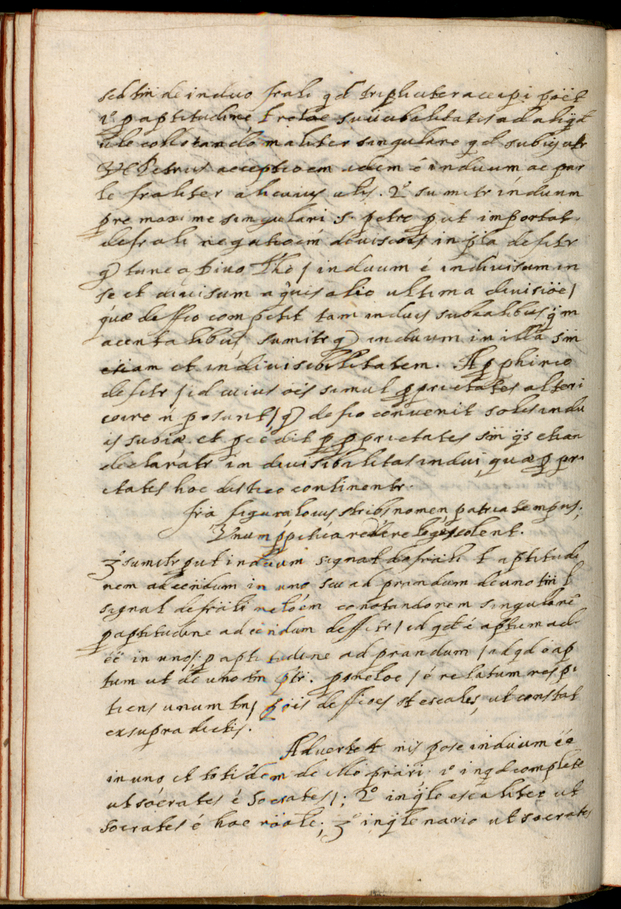 sed tm̃ de induo frali qd tripliciter accipi põt
1º p aptitudinẽ l relõe subiicibilitatis ad aliqd
ule connotando maliter singulare qd subiicitr
Vt Petrus acceptioem adem ẽ induum ac par
le fraliter alicuius ulis. 2º sumitr induum
pro maxime singulari s. petro put importat
de frali negatioem divisiois in pla defitr
q tunc a Divo Tho / induum ẽ indivisum in
se et divisum a quis alio ultima divisioe /
quæ deffio competit tam induis subalibus qm
accntalibus sumitr q induum in illa sm
etiam et indivisibilitatem. A Pphirio
defitr / id cuius oes simul pprietates alteri
coire ñ possunt / q defio convenit solis indu
is subiæ. et pcedit p pprietates sm qs etiam
declaratr indivisibilitas indui, quæ p pr-
ietates hoc distico continentr.
fra figura locus stirbs nomen patria tempus,
Unum ppetia reddere lege solent.
3º sumitr put induum signat de frali l aptitudi
nem ad eendum in uno seu ad prandum de uno tm l
signat de frali relõem conotando rem singularẽ
p aptitudine ad eendum deffitr / id qd ẽ aptum ad
eẽ in uno / p aptitudine ad prandum / id qd ẽ ap
tum ut de uno tm ptr. pro reloe / ẽ relatum respi
tiens unum tm / qois deffioes st escales, ut constat
ex supra dictis.
Advertet nis pose induum ẽe
in uno et totidem de illo prari. 1º in qd complete
ut socrates ẽ Socrates /; 2º in qle escaliter ut
socrates ẽ hoc roale; 3º in qle nario ut socrates